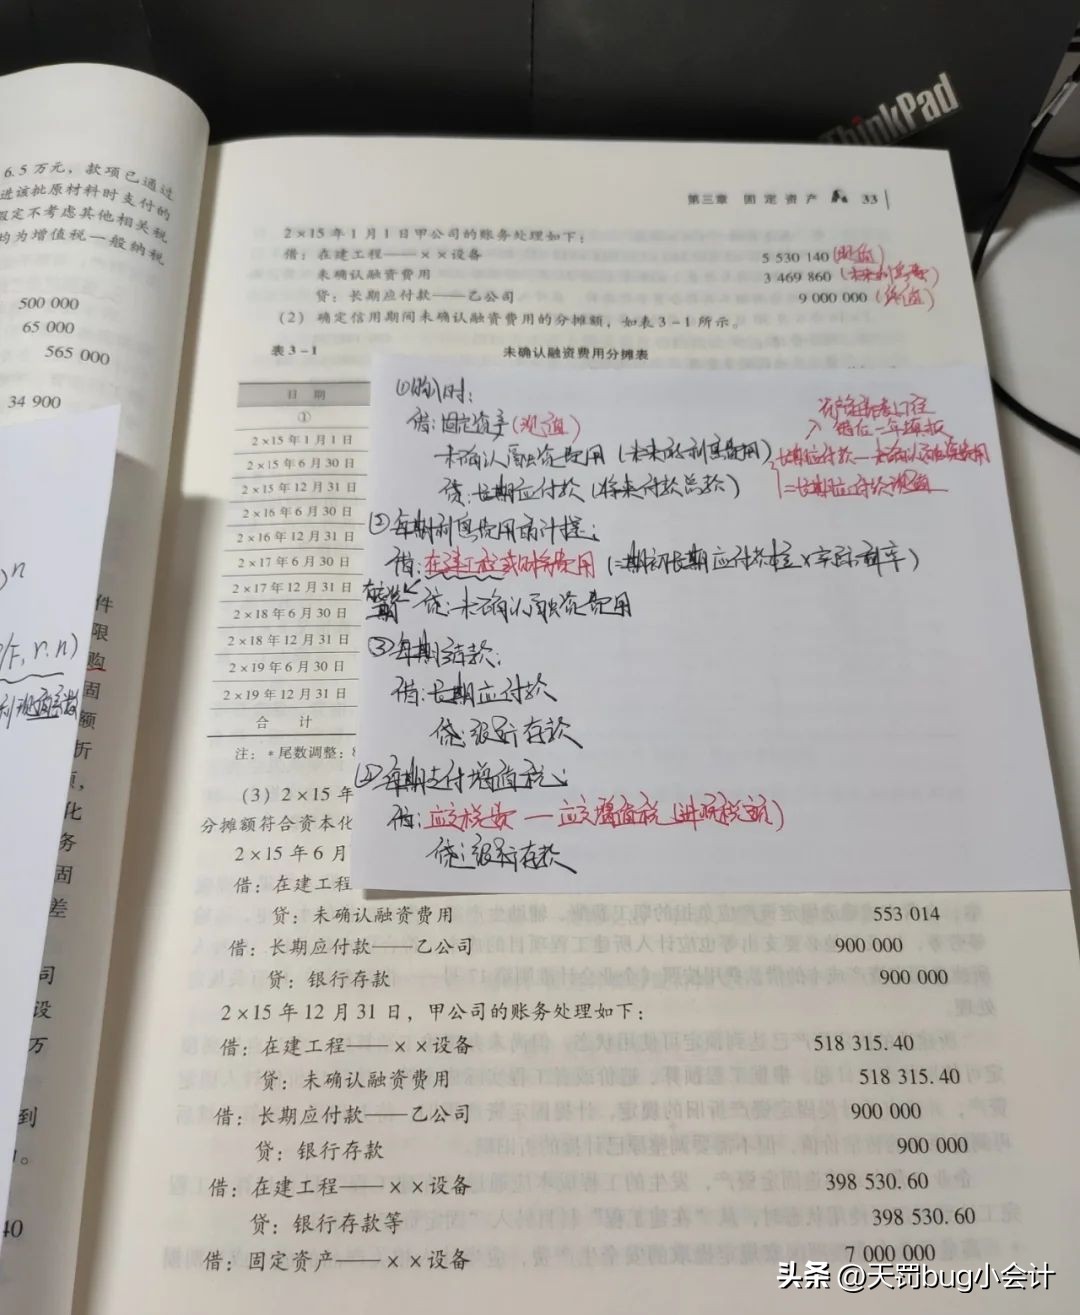 ThinkPad
6.5万元，款项已通过
进该批原材料时支付的
假定不考虑其他相关税
均为增值税一般纳税
500 000
65 000
565 000
34 900
件
限
购
固
额
折
化
务
固
差
司
设
万
到
第三章 固定资产 33
2×15年1月1日甲公司的账务处理如下：
借：在建工程——××设备 5 530 140 (现值)
未确认融资费用 3 469 860 (未来利息费)
贷：长期应付款——乙公司 9 000 000 (终值)
(2) 确定信用期间未确认融资费用的分摊额，如表3-1所示。
表3-1 未确认融资费用分摊表
日 期
①
2×15年1月1日
2×15年6月30日
2×15年12月31日
2×16年6月30日
2×16年12月31日
2×17年6月30日
2×17年12月31日
2×18年6月30日
2×18年12月31日
2×19年6月30日
2×19年12月31日
合 计
注：*尾数调整：8
①购入时：
借：固定资产(现值)
未确认融资费用 (未来的利息费用)
贷：长期应付款 (将来付款总款)
长期应付款—未确认融资费用
=长期应付款现值
②每期利息费用的计提：
借：在建工程或财务费用 (=期初长期应付款×实际利率)
贷：未确认融资费用
③每期还款：
借：长期应付款
贷：银行存款
④每期支付增值税：
借：应交税费—应交增值税(进项税额)
贷：银行存款
(3) 2×15年
分摊额符合资本化
2×15年6月
借：在建工程
贷：未确认融资费用 553 014
借：长期应付款——乙公司 900 000
贷：银行存款 900 000
2×15年12月31日，甲公司的账务处理如下：
借：在建工程——××设备 518 315.40
贷：未确认融资费用 518 315.40
借：长期应付款——乙公司 900 000
贷：银行存款 900 000
借：在建工程——××设备 398 530.60
贷：银行存款等 398 530.60
借：固定资产——××设备 7 000 000
头条 @天罚bug小会计